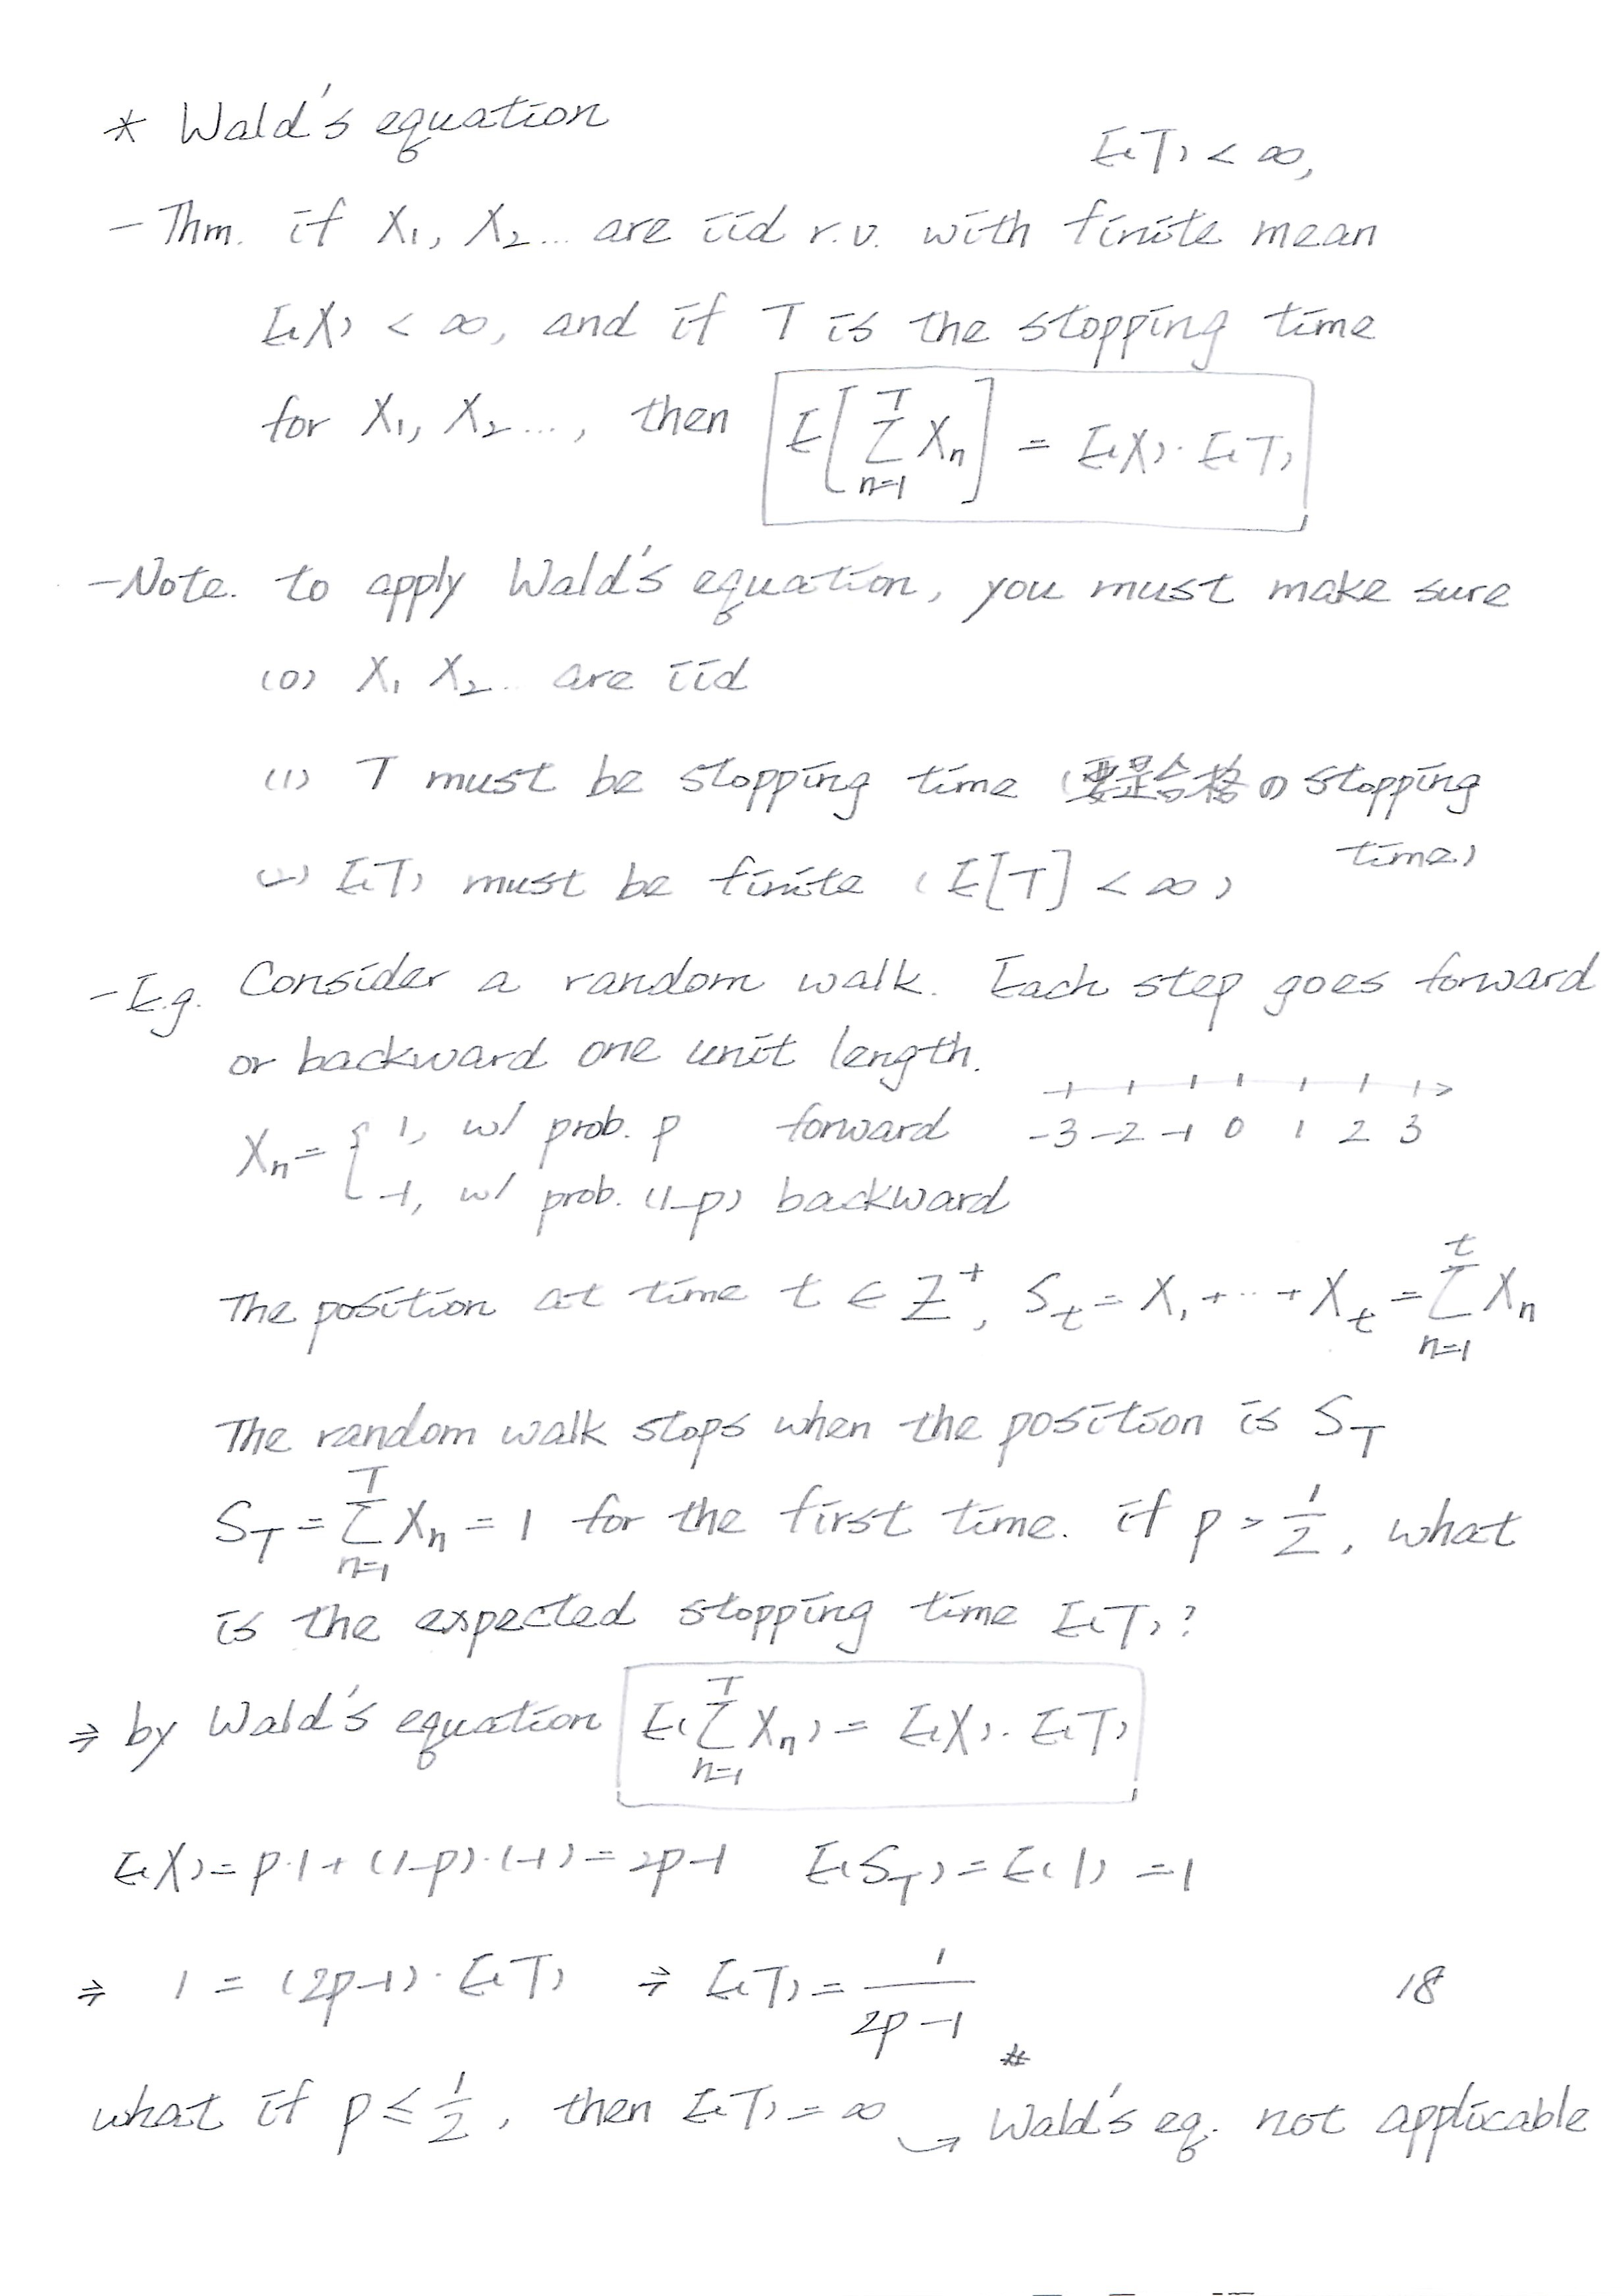 * Wald's equation
E(T) < ∞,
- Thm. if X₁, X₂... are iid r.v. with finite mean
E(X) < ∞, and if T is the stopping time
for X₁, X₂..., then E[∑_{n=1}^{T} Xₙ] = E(X)·E(T)
- Note. to apply Wald's equation, you must make sure
(0) X₁ X₂.. are iid
(1) T must be stopping time (要是合格の stopping
time)
(2) E(T) must be finite (E[T] < ∞)
- E.g. Consider a random walk. Each step goes forward
or backward one unit length.
-3 -2 -1 0 1 2 3
Xₙ = { 1, w/ prob. p forward
-1, w/ prob. (1-p) backward
The position at time t ∈ Z⁺, S_t = X₁ + ... + X_t = ∑_{n=1}^{t} Xₙ
The random walk stops when the position is S_T
S_T = ∑_{n=1}^{T} Xₙ = 1 for the first time. if p > 1/2, what
is the expected stopping time E(T)?
⇒ by Wald's equation E(∑_{n=1}^{T} Xₙ) = E(X)·E(T)
E(X) = p·1 + (1-p)·(-1) = 2p-1 E(S_T) = E(1) = 1
⇒ 1 = (2p-1)·E(T) ⇒ E(T) = 1/(2p-1) #
18
what if p ≤ 1/2, then E(T) = ∞ → Wald's eq. not applicable